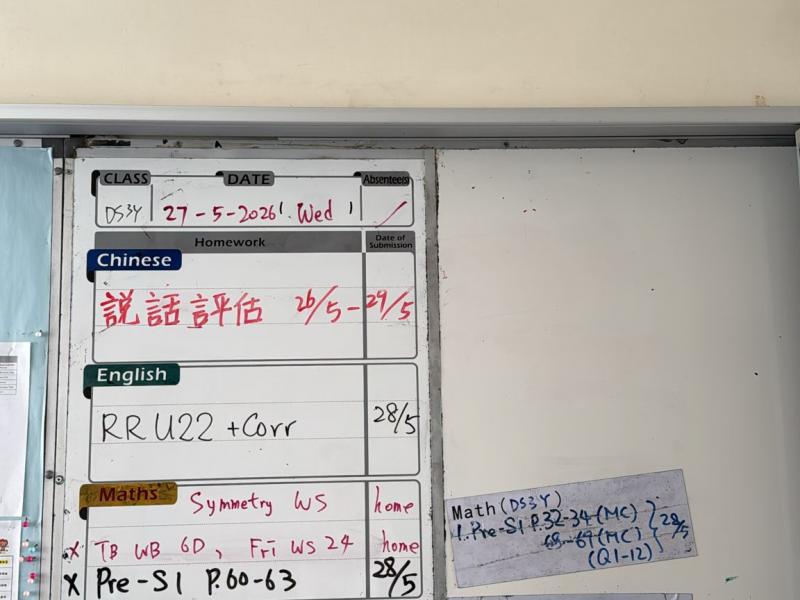 CLASS DATE Absentee(s)
DS3Y 27-5-2026 Wed /
Homework Date of Submission
Chinese
説話評估 26/5-29/5
English
RR U22 +Corr 28/5
Maths Symmetry WS home
x TB WB 6D, Fri WS 24 home
x Pre-S1 P.60-63 28/5
Math (DS3Y)
1. Pre-S1 P.32-34 (MC)
68-69 (MC) 28/5
(Q1-12)